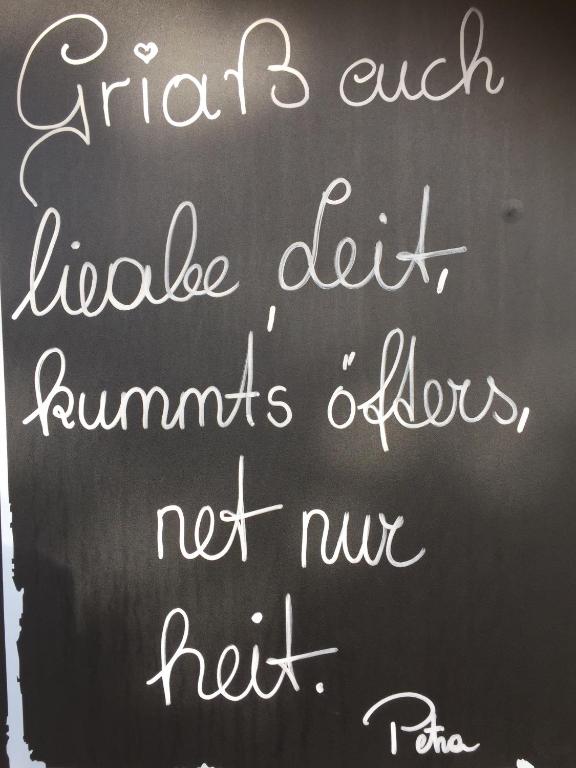 Griaß euch
lieabe Leit,
kummt's öfters,
net nur
heit.
Petra